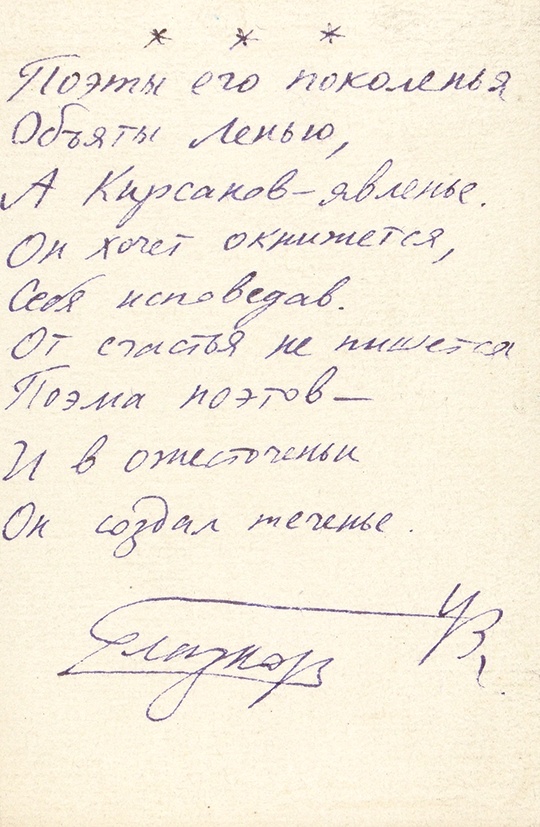 * * *
Поэты его поколенья
Объяты ленью,
А Кирсанов – явленье.
Он хочет окнижется,
Себя исповедав.
От счастья не пишется
Поэма поэтов –
И в ожесточеньи
Он создал теченье.
Глазков